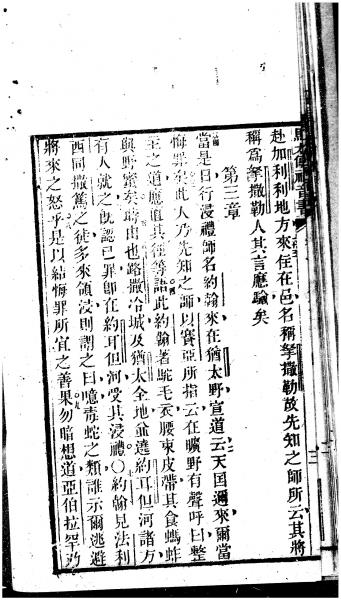 赴加利利地方來住在邑名稱拏撒勒故先知之師所云其將
稱爲拏撒勒人其言應驗矣
第三章
當是日行浸禮師名約翰來在猶太野宣道云天国邇來爾當
悔罪矣此人乃先知之師以賽亞所指云在曠野有聲呼曰整
主之道應直其徑等語此約翰著駝毛衣腰束皮帶其食螞蚱
與野蜜矣時由也路撒冷城及猶太全地並遶約耳但河諸方
有人就之旣認己罪卽在約耳但河受其浸禮○約翰見法利
西同撒篤之徒多來領浸則謂之曰噫毒蛇之類誰示爾逃避
將來之怒乎是以結悔罪所宜之善果勿暗想道亞伯拉罕乃